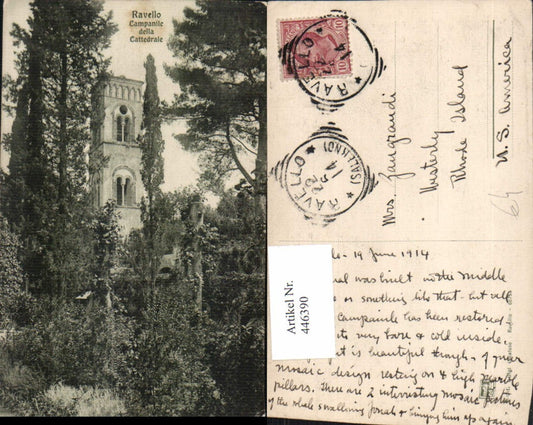 Ravello
Campanile
della
Cattedrale
10
RAVELLO
14
RAVELLO
(SALERNO)
14
Mrs.
Westerly
Rhode Island
U.S. America
64
Artikel Nr.
446390
19 June 1914
was built in the middle
or something like that - but
Campanile has been restored
very bare & cold inside
is beautiful though - of
mosaic design resting on 6 high marble
pillars. There are 2 interesting mosaic pictures
of the whale swallowing Jonah & bringing him up again